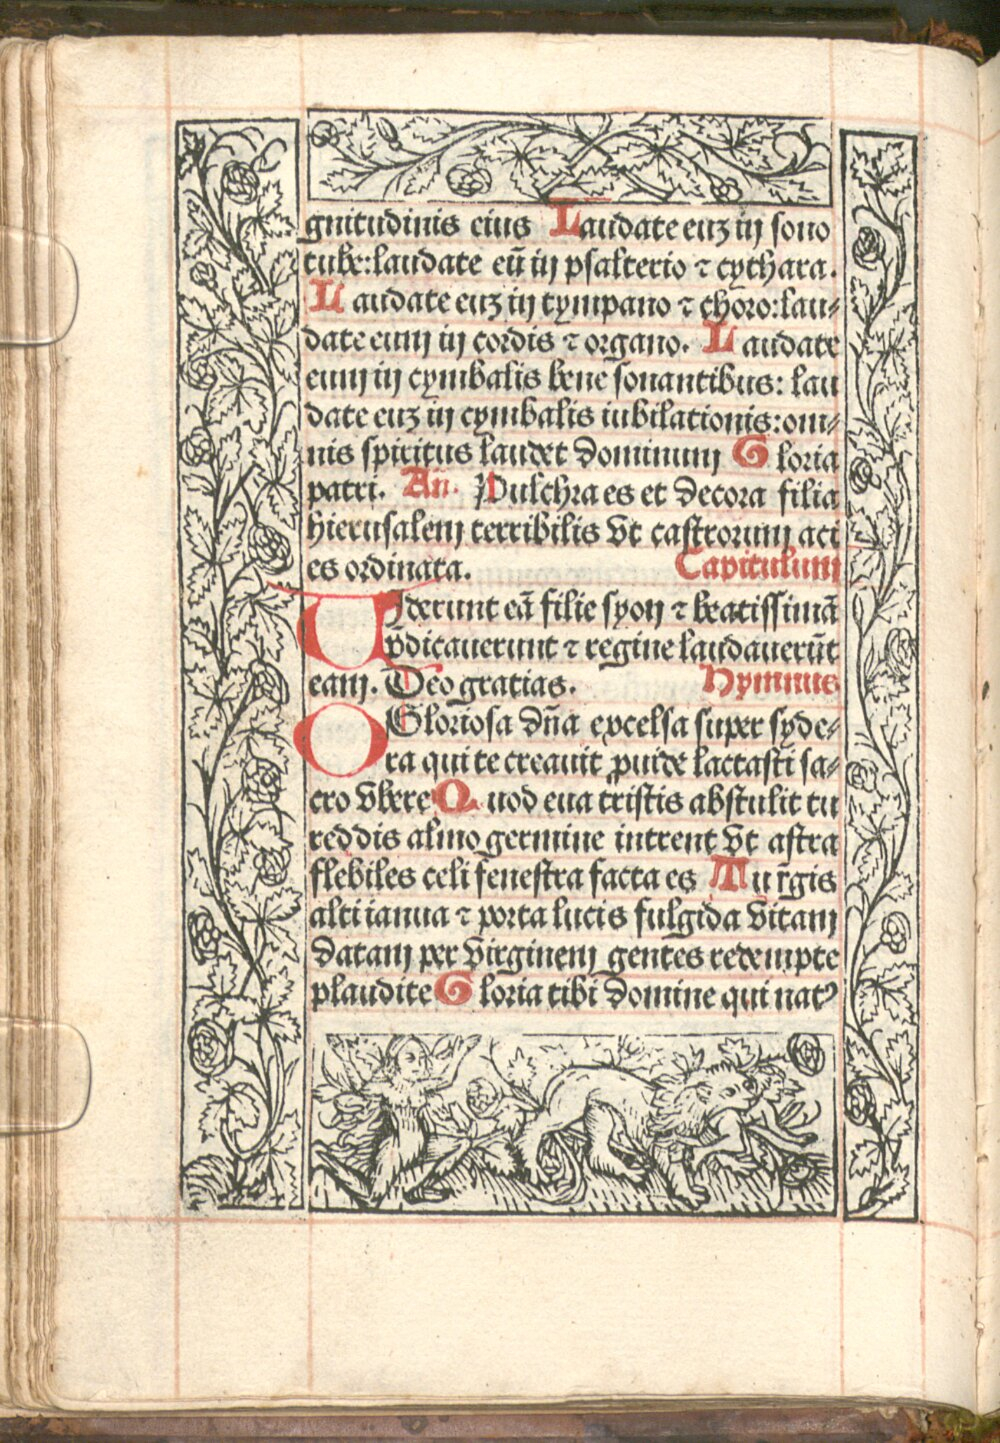 gnitudinis eius Laudate euꝫ in sono
tube:laudate eū in psalterio ⁊ cythara.
Laudate euꝫ in tympano ⁊ choro:lau-
date eum in cordis ⁊ organo. Laudate
eum in cymbalis bene sonantibus: lau
date euꝫ in cymbalis iubilationis:om-
nis spiritus laudet dominum Gloria
patri. Añ. Pulchra es et decora filia
hierusalem terribilis vt castrorum aci
es ordinata. Capitulum
Viderunt eā filie syon ⁊ beatissimā
p̄dicauerunt ⁊ regine laudauerūt
eam. Deo gratias. Hymnus
O Gloriosa dn̄a excelsa super syde-
ra qui te creauit ꝓuide lactasti sa-
cro vbere Quod eua tristis abstulit tu
reddis almo germine intrent vt astra
flebiles celi fenestra facta es Tu r̄gis
alti ianua ⁊ porta lucis fulgida vitam
datam per virginem gentes redempte
plaudite Gloria tibi domine qui natꝰ